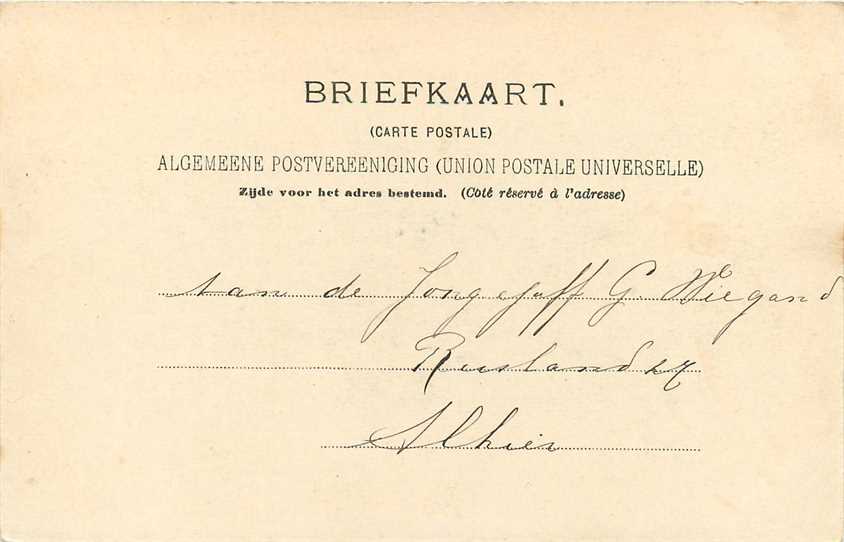 BRIEFKAART.
(CARTE POSTALE)
ALGEMEENE POSTVEREENIGING (UNION POSTALE UNIVERSELLE)
Zijde voor het adres bestemd. (Côté réservé à l'adresse)
aan de Jongejuff G. Wiegand
Alhier